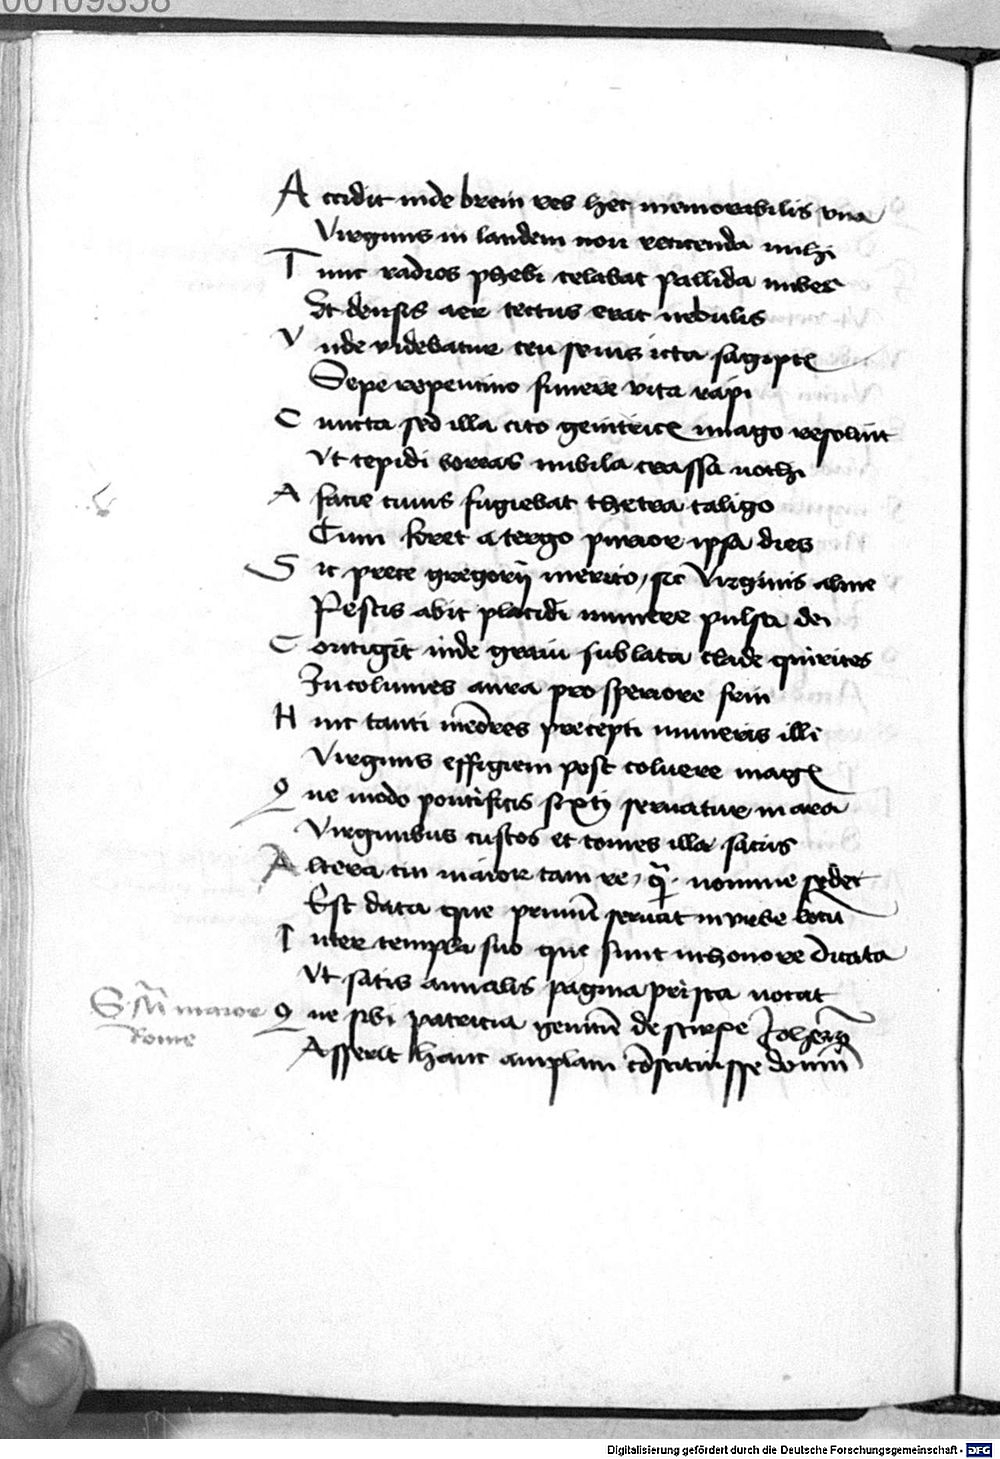 00109358
Accidit inde brein res hec memorabilis vna
Virginis in laudem non reticenda mihi
Tunc radios phebi celabat pallida nubes
Et densis aer tectus erat nebulis
Vnde videbatur ceu seuis icta sagiptę
Sepe repentino funere vita rapi
Cuncta sed illa cito genitricę imago resoluit
Vt tepidi boreas nubila crassa nothi
A facie cuius fugiebat thetra caligo
Cum foret a tergo purior ipsa dies
Sic prece gregorij merito, sic Virginis alme
Pestis abit placidi munere pulsa dei
Contigit inde graui sublata clade quirites
Incolumes aura prosperiore frui
Hinc tanti mēores precepti muneris illi
Virginis effigiem post coluere magę
Que modo pontificis sixti seruatur in ara
Virginibus custos et comes illa sacris
Altera cui maior tam re, q̄ nomine sedes
Est data que primū seruat in vrbe locū
Inter templa suo que sunt in honore dicata
Vt satis annalis pagina prisca notat
S. M maior
Rome
Que sibi patricia genitū de stirpe Johem
Asserit hanc amplam cōstituisse domū
Digitalisierung gefördert durch die Deutsche Forschungsgemeinschaft - DFG